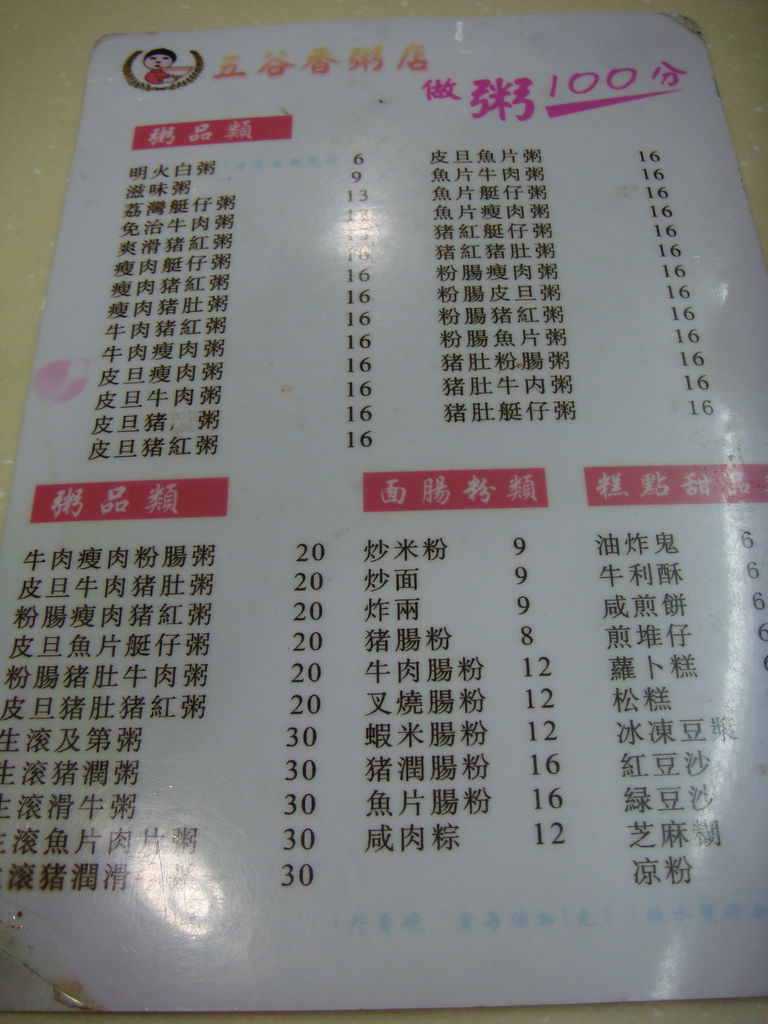 五谷香粥店
做粥100分
粥品類
明火白粥 6
滋味粥 9
荔灣艇仔粥 13
免治牛肉粥
爽滑猪紅粥
瘦肉艇仔粥 16
瘦肉猪紅粥 16
瘦肉猪肚粥 16
牛肉猪紅粥 16
牛肉瘦肉粥 16
皮旦瘦肉粥 16
皮旦牛肉粥 16
皮旦猪 粥 16
皮旦猪紅粥 16
皮旦魚片粥 16
魚片牛肉粥 16
魚片艇仔粥 16
魚片瘦肉粥 16
猪紅艇仔粥 16
猪紅猪肚粥 16
粉腸瘦肉粥 16
粉腸皮旦粥 16
粉腸猪紅粥 16
粉腸魚片粥 16
猪肚粉腸粥 16
猪肚牛内粥 16
猪肚艇仔粥 16
粥品類
牛肉瘦肉粉腸粥 20
皮旦牛肉猪肚粥 20
粉腸瘦肉猪紅粥 20
皮旦魚片艇仔粥 20
粉腸猪肚牛肉粥 20
皮旦猪肚猪紅粥 20
生滚及第粥 30
生滚猪潤粥 30
生滚滑牛粥 30
生滚魚片肉片粥 30
滚猪潤滑 30
面腸粉類
炒米粉 9
炒面 9
炸兩 9
猪腸粉 8
牛肉腸粉 12
叉燒腸粉 12
蝦米腸粉 12
猪潤腸粉 16
魚片腸粉 16
咸肉粽 12
糕點甜品
油炸鬼 6
牛利酥 6
咸煎餅 6
煎堆仔 6
蘿卜糕
松糕
冰凍豆漿
紅豆沙
緑豆沙
芝麻糊
凉粉